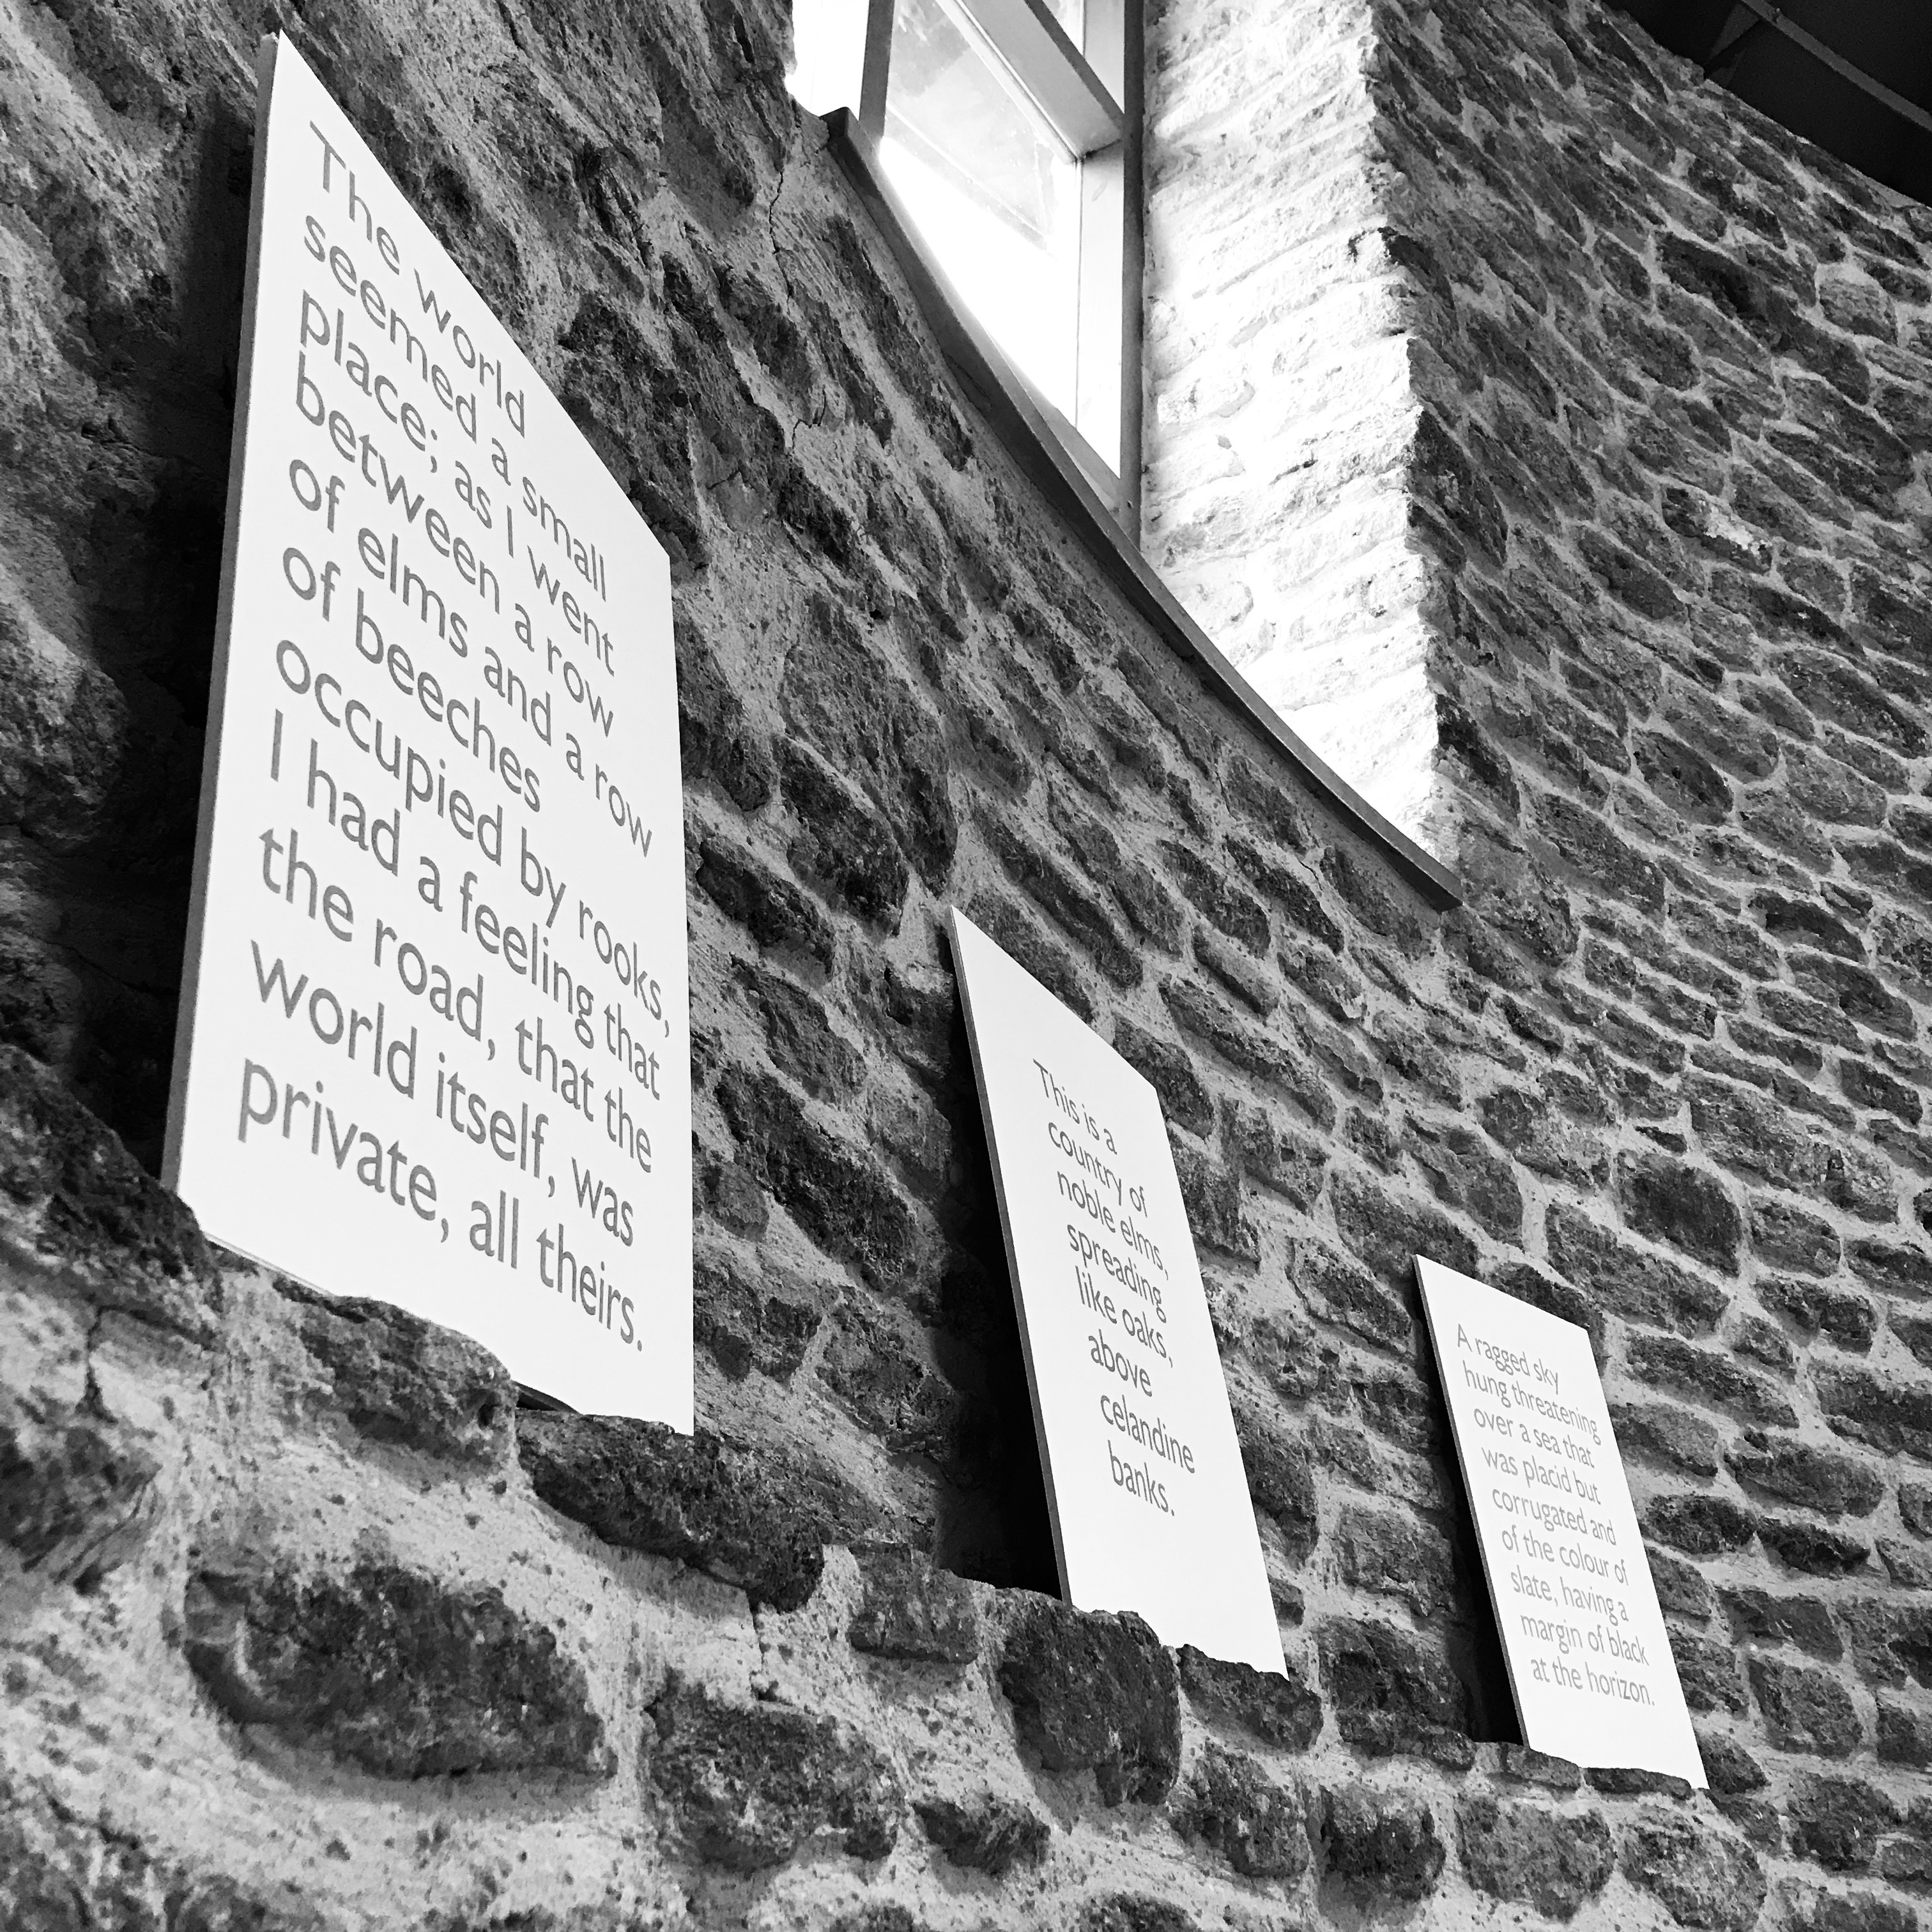 The world
seemed a small
place; as I went
between a row
of elms and a row
of beeches
occupied by rooks,
I had a feeling that
the road, that the
world itself, was
private, all theirs.
This is a
country of
noble elms,
spreading
like oaks,
above
celandine
banks.
A ragged sky
hung threatening
over a sea that
was placid but
corrugated and
of the colour of
slate, having a
margin of black
at the horizon.